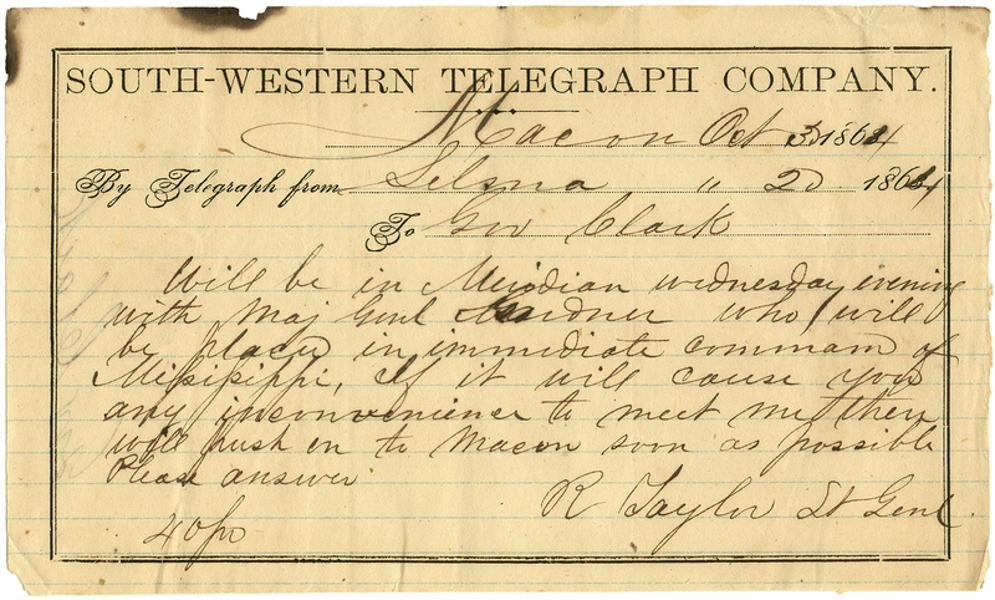 SOUTH-WESTERN TELEGRAPH COMPANY.
Macon Oct 3d 1864
By Telegraph from Selma " 2d 1864
To Gov Clark
Will be in Meridian wednesday evening
with Maj Genl Gardner who will
be placed in immediate command of
Missisippi, If it will cause you
any inconvenience to meet me there
will push on to Macon soon as possible
Please answer
R Taylor Lt Genl
40 pd